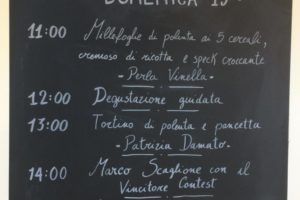 DOMENICA 19
11:00 Millefoglie di polenta ai 5 cereali,
cremoso di ricotta e speck croccante
- Perla Vinella -
12:00 Degustazione guidata
13:00 Tortino di polenta e pancetta
- Patrizia Damato -
14:00 Marco Scaglione con il
Vincitore Contest